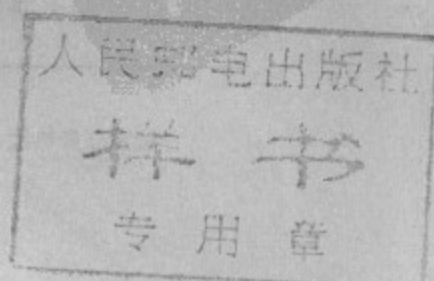 人民邮电出版社
样书
专用章